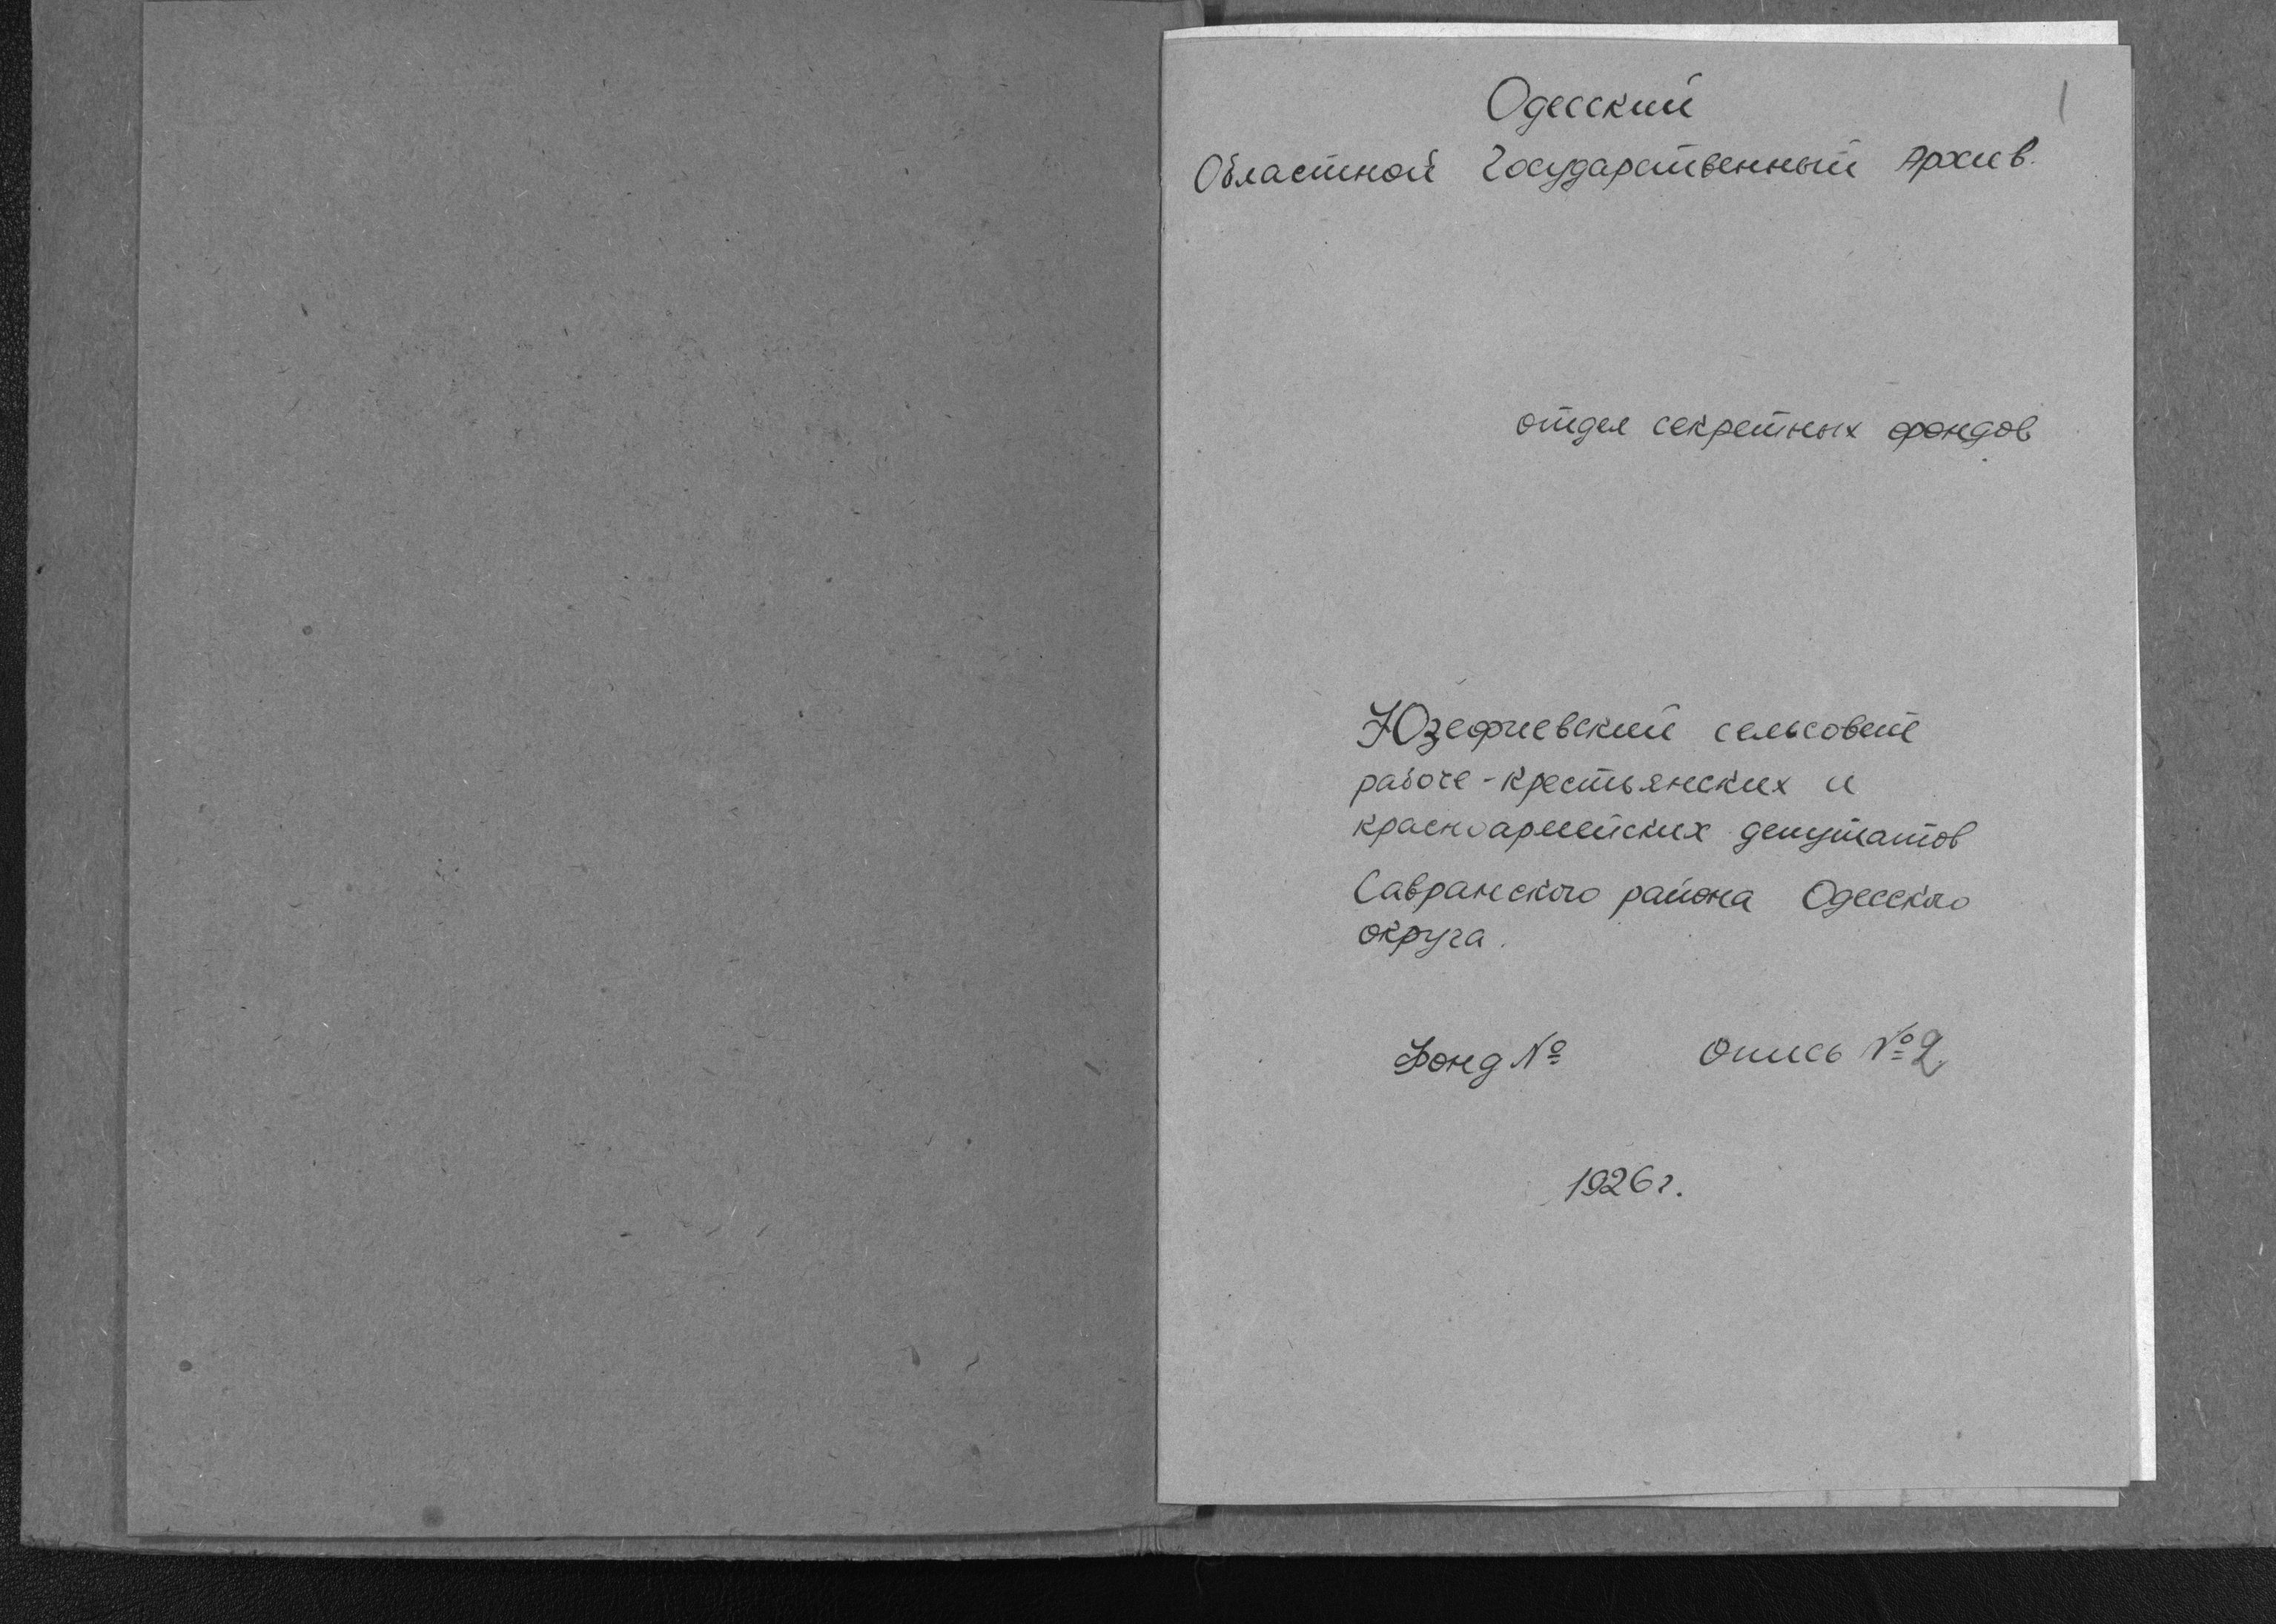 1
Одесский
Областной Государственный Архив.
отдел секретных фондов
Юзефиевский сельсовет
рабоче-крестьянских и
красноармейских депутатов
Савранского района Одесского
округа.
Фонд № Опись № 2
1926 г.